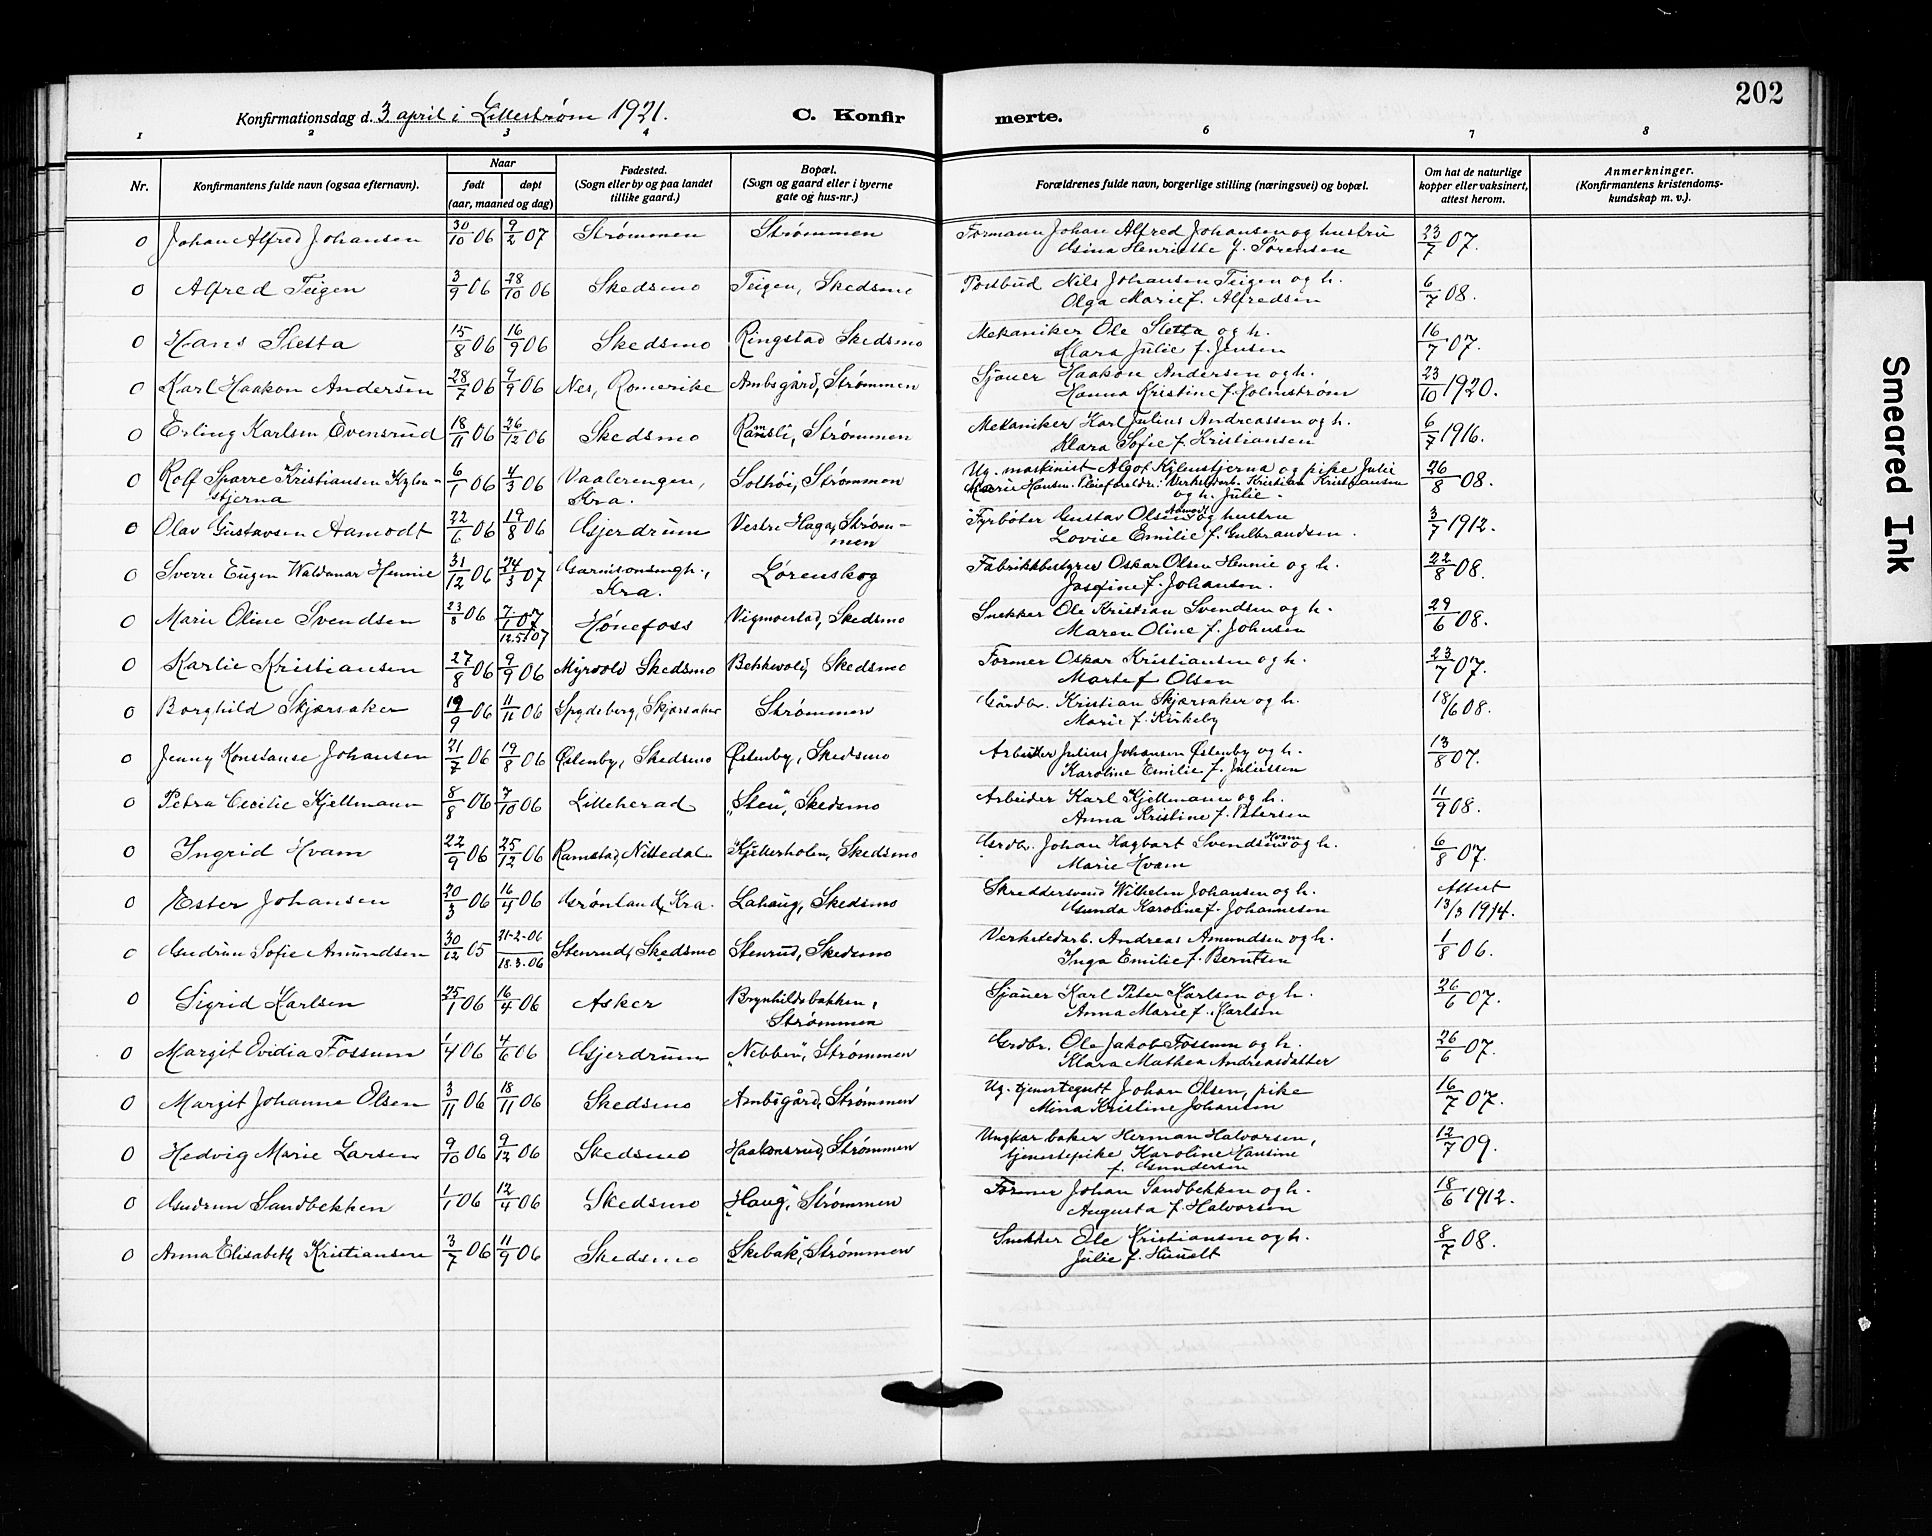 202
Konfirmationsdag d. 3 april i Lillestrøm 1921. C. Konfirmerte.
1 2 3 4 6 7 8
Nr. Konfirmantens fulde navn (ogsaa efternavn). Naar født døpt (aar, maaned og dag) Fødested. (Sogn eller by og paa landet tillike gaard.) Bopæl. (Sogn og gaard eller i byerne gate og hus-nr.) Forældrenes fulde navn, borgerlige stilling (næringsvei) og bopæl. Om hat de naturlige kopper eller vaksinert, attest herom. Anmerkninger. (Konfirmantens kristendomskundskap m. v.).
0 Johan Alfred Johansen 30/10 06 9/2 07 Strømmen Strømmen Formann Johan Alfred Johansen og hustru Asina Henriette f. Sørensen 23/7 07.
0 Alfred Teigen 3/9 06 28/10 06 Skedsmo Teigen, Skedsmo Postbud Nils Johansen Teigen og h. Olga Marie f. Alfredsen 6/7 08.
0 Hans Sletta 15/8 06 16/9 06 Skedsmo Ringstad Skedsmo Mekaniker Ole Sletta og h. Klara Julie f. Jensen 16/7 07.
0 Karl Haakon Andersen 28/7 06 9/9 06 Nes, Romerike Ambsgård, Strømmen Sjauer Haakon Andersen og h. Hanna Kristine f. Holmstrøm 23/10 1920.
0 Erling Karlsen Evensrud 18/11 06 26/12 06 Skedsmo Ramsli, Strømmen Mekaniker Karl Julius Andreassen og h. Klara Sofie f. Kristiansen 6/7 1916.
0 Rolf Sparre Kristiansen Kylenstjerna 6/1 06 4/3 06 Vaalerengen, Kra. Solhöi, Strømmen Ug. maskinist Algot Kylenstjerna og pike Julie Marie Hansen. Pleieforeldre: Verkstedarb. Kristian Kristiansen og h. Julie. 26/8 08.
0 Olav Gustavsen Aamodt 22/6 06 19/8 06 Gjerdrum Vestre Haga, Strømmen Fyrbøter Gustav Olsen Aamodt og hustru Lovise Emilie f. Gulbrandsen. 3/7 1912.
0 Sverre Eugen Waldemar Hennie 31/12 06 24/3 07 Garnisonsmgh., Kra. Lørenskog Fabrikkbestyrer Oskar Olsen Hennie og h. Josefine f. Johansen. 22/8 08.
0 Marie Oline Svendsen 23/8 06 7/1 07 12.5.07 Hønefoss Vigmostad, Skedsmo Snekker Ole Kristian Svendsen og h. Maren Oline f. Johnsen 29/6 08.
0 Karlie Kristiansen 27/8 06 9/9 06 Myrvold Skedsmo Bekkevold, Skedsmo Former Oskar Kristiansen og h. Marte f. Olsen 23/7 07.
0 Borghild Skjærsaker 19/9 06 11/11 06 Spydeberg, Skjærsaker Strømmen Gårdbr. Kristian Skjærsaker og h. Marie f. Kirkeby 18/6 08.
0 Jenny Konstanse Johansen 21/7 06 19/8 06 Østenby, Skedsmo Østenby, Skedsmo Arbeider Julius Johansen Østenby og h. Karoline Emilie f. Juliussen 13/8 07.
0 Petra Cecilie Kjellmann 8/8 06 7/10 06 Lilleherad "Sten", Skedsmo Arbeider Karl Kjellmann og h. Anna Kristine f. Petersen 11/9 08.
0 Ingrid Hvam 22/9 06 25/12 06 Ramstad, Nittedal. Kjellerholen, Skedsmo Grdbr. Johan Hagbart Svendsen Hvam og h. Marie Hvam 6/8 07.
0 Ester Johansen 20/3 06 16/4 06 Grønland, Kra. Lahaug, Skedsmo Skreddersvend Wilhelm Johansen og h. Gunda Karoline f. Johannesen Attest 13/3 1914.
0 Gudrun Sofie Amundsen 30/12 05 21-2-06 18.3.06 Stenrud, Skedsmo Stenrud, Skedsmo Verkstedarb. Andreas Amundsen og h. Inga Emilie f. Berntsen 1/8 06.
0 Sigrid Karlsen 25/1 06 16/4 06 Asker Brynhildsbakken, Strømmen Sjauer Karl Peter Karlsen og h. Anna Marie f. Karlsen 26/6 07.
0 Margit Ovidia Fossum 1/4 06 4/6 06 Gjerdrum "Nebben", Strømmen Grdbr. Ole Jakob Fossum og h. Klara Mathea Andreasdatter 26/6 07.
0 Margit Johanne Olsen 3/11 06 18/11 06 Skedsmo Ambsgård, Strømmen Ug. tjenestegutt Johan Olsen, pike Mina Kristine Johansen 16/7 07.
0 Hedvig Marie Larsen 9/10 06 9/12 06 Skedsmo Haakonsrud, Strømmen Ungkar baker Herman Halvorsen, tjenestepike Karoline Hansine f. Gundersen 12/7 09.
0 Gudrun Sandbekken 1/1 06 12/4 06 Skedsmo "Haug", Strømmen Former Johan Sandbekken og h. Augusta f. Halvorsen 18/6 1912.
0 Anna Elisabeth Kristiansen 3/7 06 11/9 06 Skedsmo "Skebak", Strømmen Snekker Ole Kristiansen og h. Julie f. 8/7 08.
Smeared Ink